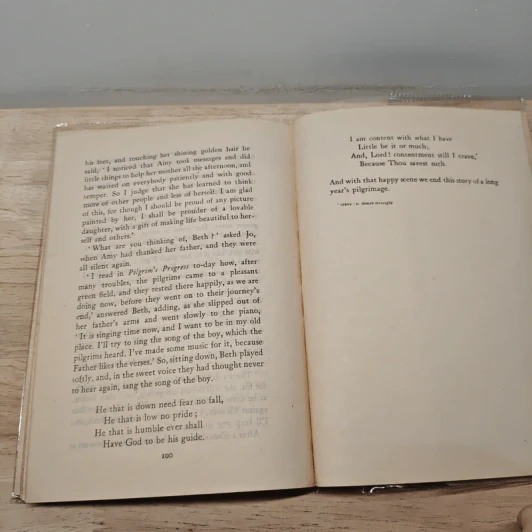 his feet, and touching her shining golden hair he
said, 'I noticed that Amy took messages and did
little things to help her mother all the afternoon, and
has waited on everybody patiently and with good
temper. So I judge that she has learned to think
more of other people and less of herself. I am glad
of this, for though I should be proud of any picture
painted by her, I shall be prouder of a lovable
daughter, with a gift of making life beautiful to her-
self and others.'
'What are you thinking of, Beth?' asked Jo,
when Amy had thanked her father, and they were
all silent again.
'I read in Pilgrim's Progress to-day how, after
many troubles, the pilgrims came to a pleasant
green field, and they rested there happily, as we are
doing now, before they went on to their journey's
end,' answered Beth, adding, as she slipped out of
her father's arms and went slowly to the piano,
'It is singing time now, and I want to be in my old
place. I'll try to sing the song of the boy, which the
pilgrims heard. I've made some music for it, because
Father likes the verses.' So, sitting down, Beth played
softly, and, in the sweet voice they had thought never
to hear again, sang the song of the boy.
He that is down need fear no fall,
He that is low no pride;
He that is humble ever shall
Have God to be his guide.
100
I am content with what I have
Little be it or much;
And, Lord! contentment still I crave,¹
Because Thou savest such.
And with that happy scene we end this story of a long
year's pilgrimage.
¹ crave : to desire strongly